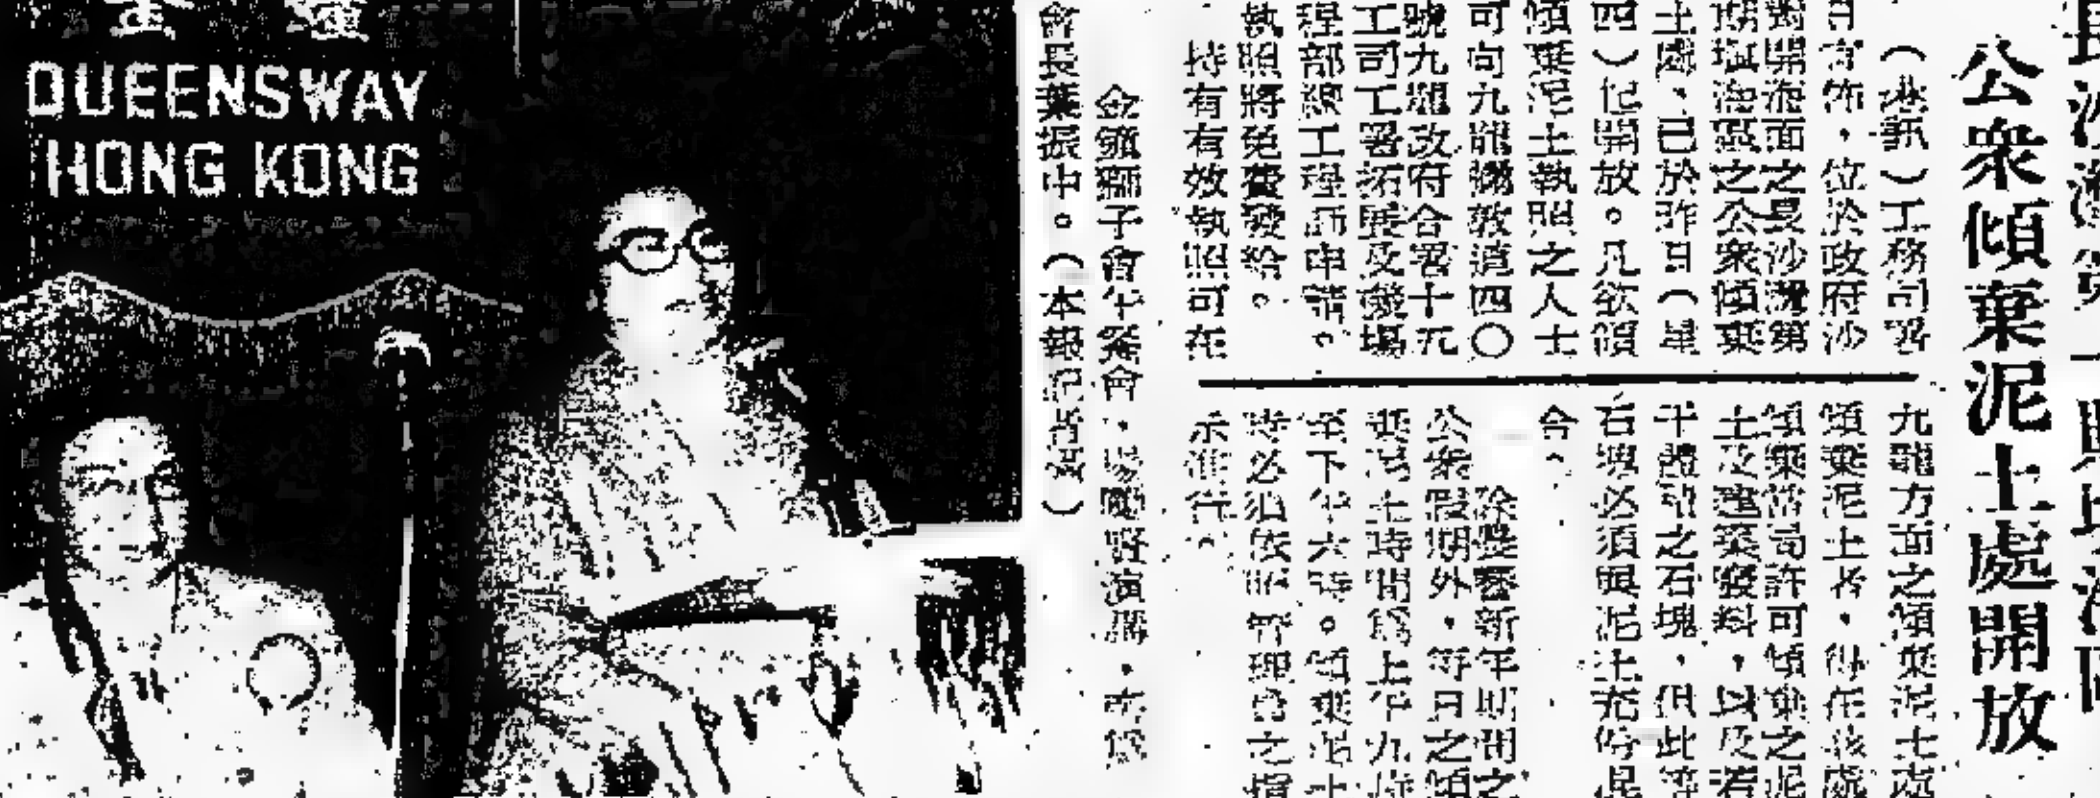 公眾傾棄泥土處開放
（港訊）工務司署
，位於政府沙
對開海面之長沙灣第
期填海區之公眾傾棄
土處、已於昨日（星
四）起開放。凡欲領
傾棄泥土執照之人士
可向九龍彌敦道四〇
號九龍政府合署十五
工司工署拓展及機場
程部總工程師申請。
執照將免費發給。
持有有效執照可在
九龍方面之傾棄泥土處
傾棄泥土者，得在該處
傾棄當局許可傾棄之泥
土及建築廢料，以及若
干體積之石塊，但此等
石塊必須與泥土充份混
合。
除農曆新年期間之
公眾假期外，每日之傾
棄泥土時間為上午九時
至下午六時。傾棄泥土
時必須依照管理員之指
示進行。
金鐘獅子會午餐會，楊勵賢演講，
會長葉振中。（本報記者攝）
QUEENSWAY
HONG KONG